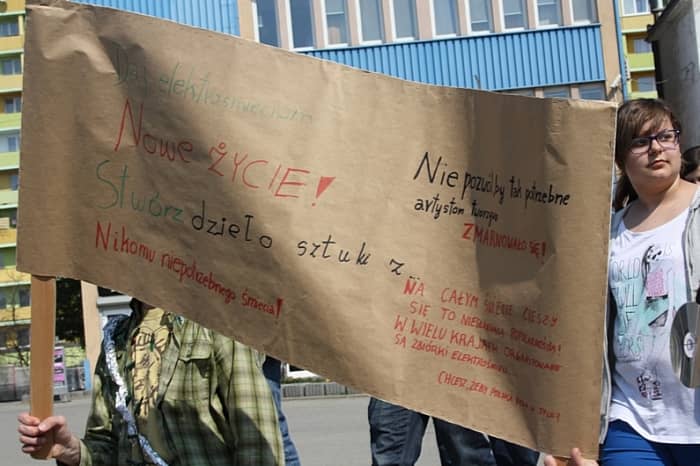 Daj elektrośmieciom
Nowe ŻYCIE!
Stwórz dzieło sztuki z...
Nikomu niepotrzebnego śmiecia!
Nie pozwól by tak potrzebne
artystom tworzywo
ZMARNOWAŁO SIĘ!
NA CAŁYM ŚWIECIE CIESZY
SIĘ TO NIESŁYCHANĄ POPULARNOŚCIĄ!
W WIELU KRAJACH ORGANIZOWANE
SĄ ZBIÓRKI ELEKTROŚMIECI...
CHCESZ, ŻEBY POLSKA BYŁA W TYLE?